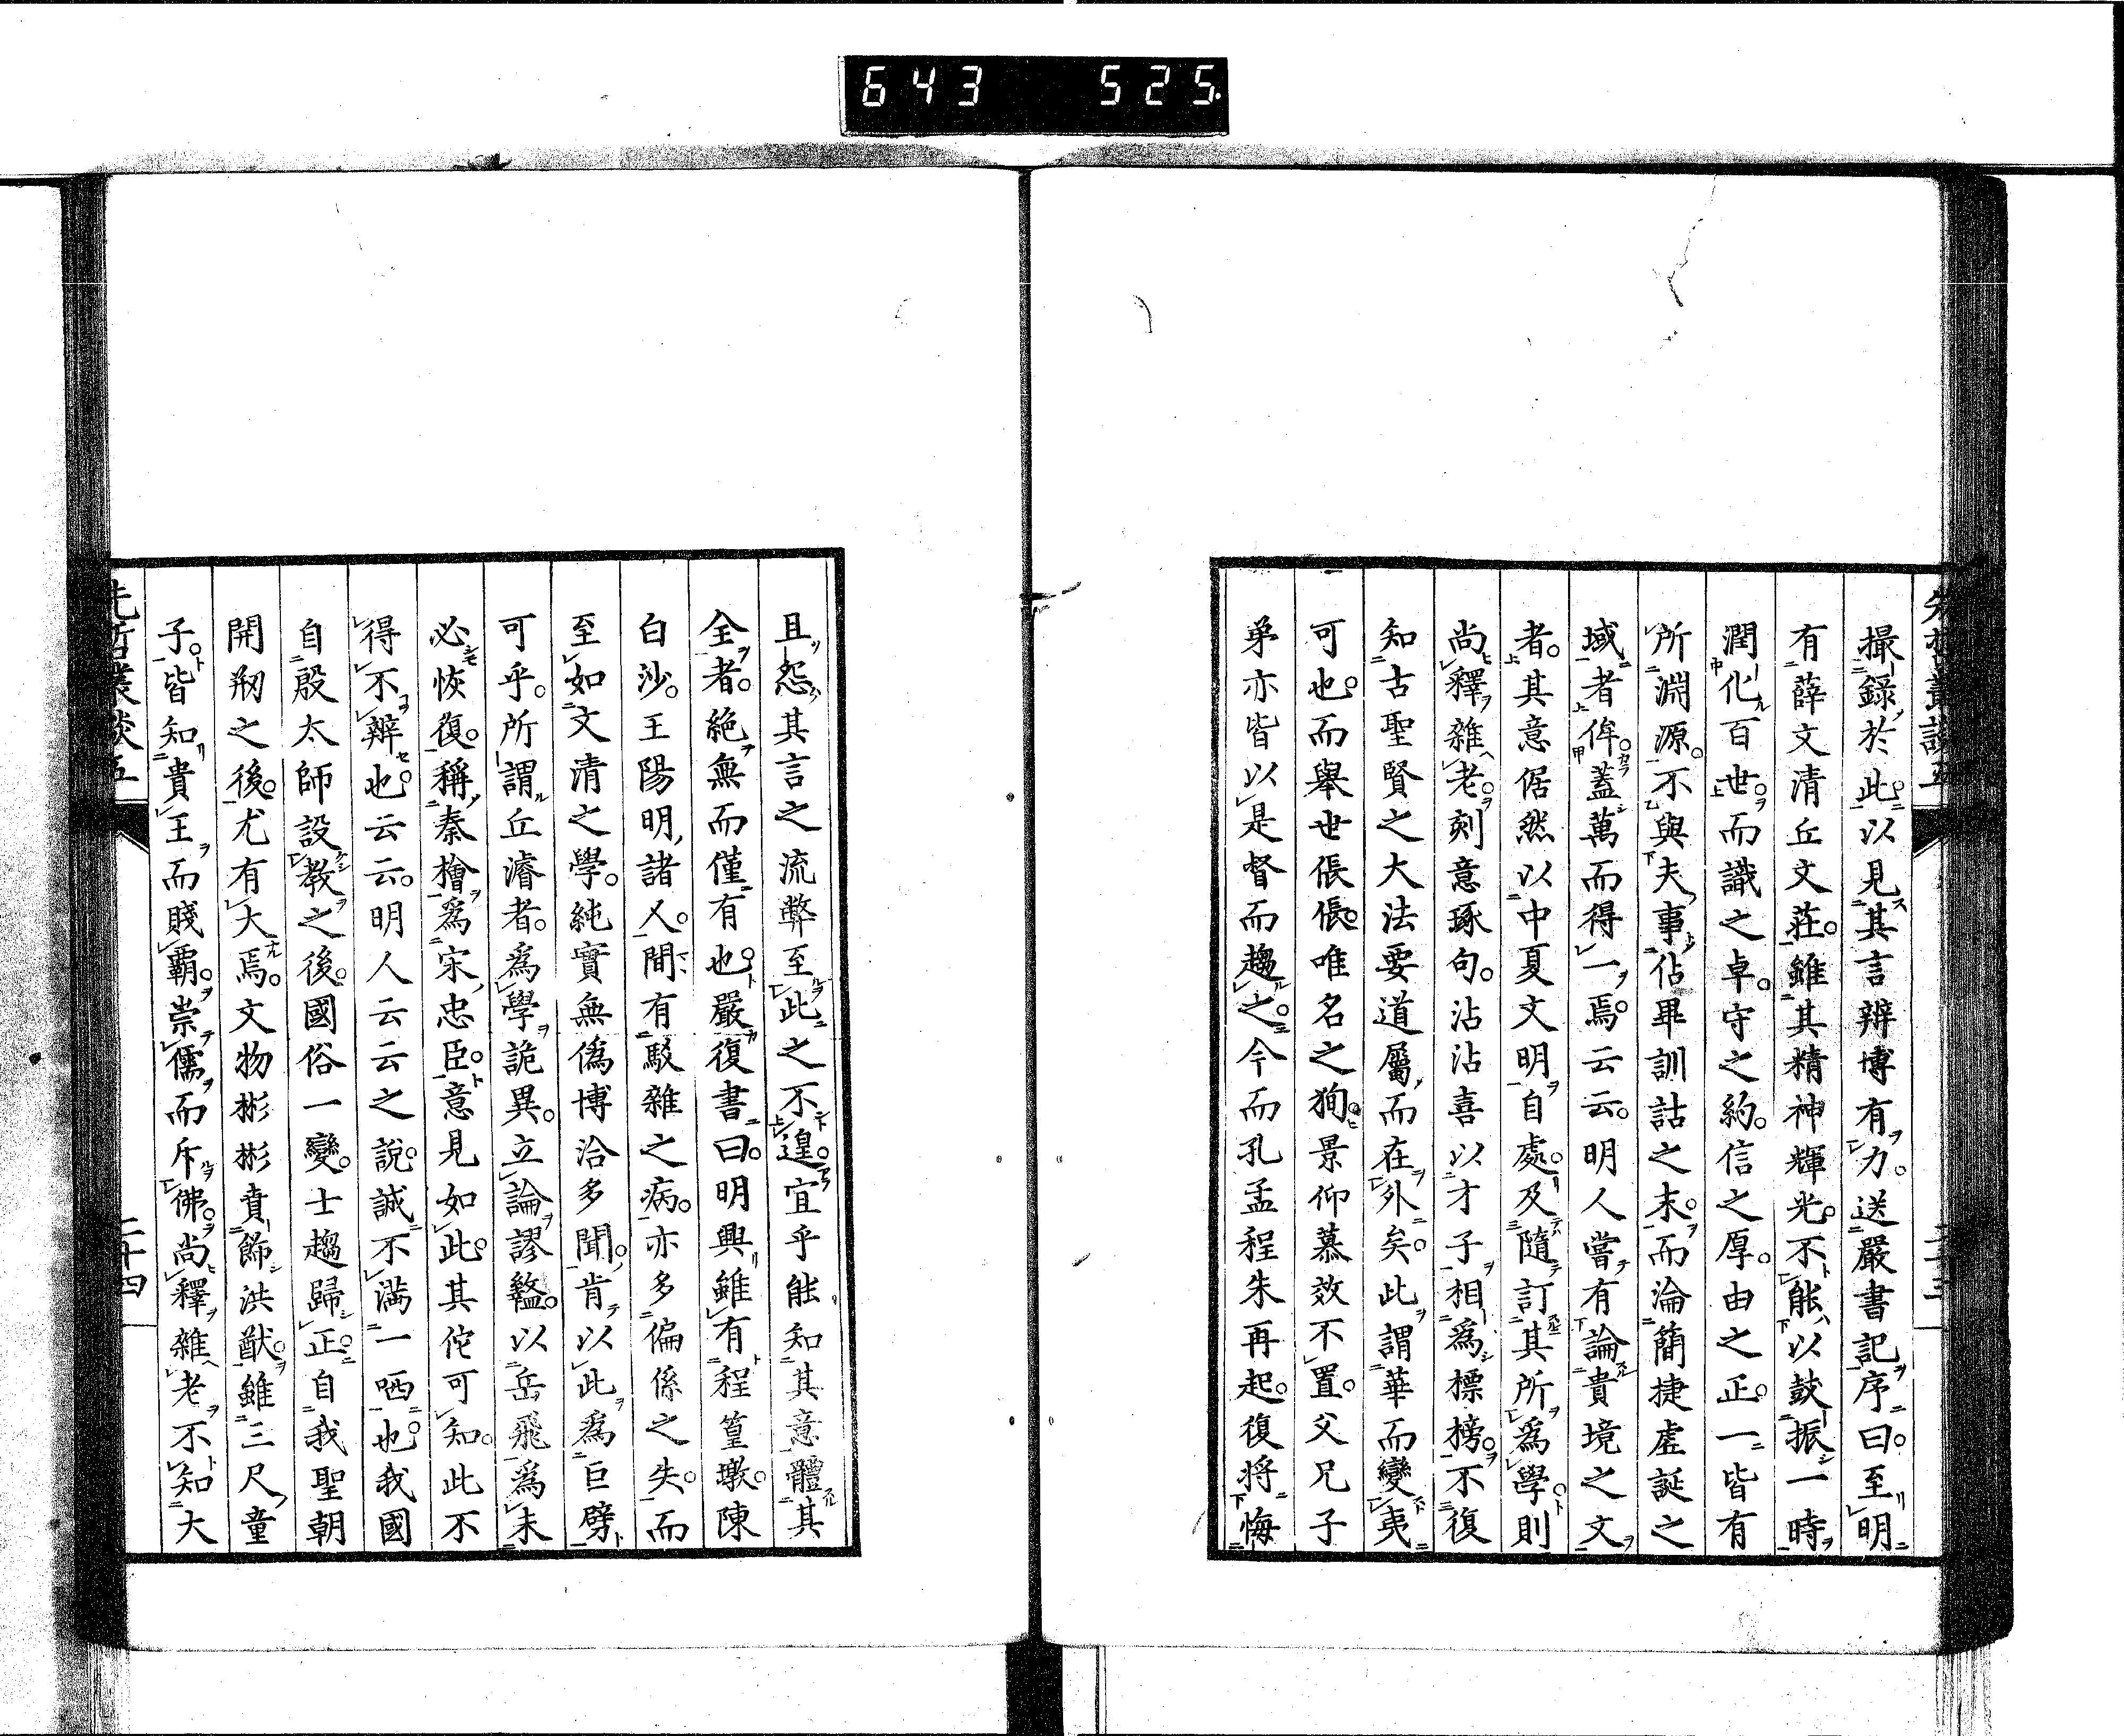 643 525
先哲叢談五
撮錄於此以見其言辨博有力送嚴書記序曰至明
有薛文清丘文莊雖其精神輝光不能以鼓振一時
潤化百世而識之卓守之約信之厚由之正一皆有
所淵源不與夫事佔畢訓詁之末而淪簡捷虛誕之
域者侔蓋萬而得一焉云云明人嘗有論貴境之文
者其意倨然以中夏文明自處及隨訂其所爲學則
尚釋雜老刻意琢句沾沾喜以才子相爲標榜不復
知古聖賢之大法要道屬而在外矣此謂華而變夷
可也而舉世倀倀唯名之狥景仰慕效不置父兄子
弟亦皆以是督而趨之今而孔孟程朱再起復將悔
且怨其言之流弊至此之不遑宜乎能知其意體其
全者絶無而僅有也嚴復書曰明興雖有程篁墩陳
白沙王陽明諸人間有駁雜之病亦多偏係之失而
至如文清之學純實無僞博洽多聞肯以此爲巨擘
可乎所謂丘濬者爲學詭異立論謬盭以岳飛爲未
必恢復稱秦檜爲宋忠臣意見如此其佗可知此不
得不辨也云云明人云云之說誠不滿一哂也我國
自殷太師設教之後國俗一變士趨歸正自我聖朝
開剏之後尤有大焉文物彬彬賁飾洪猷雖三尺童
子皆知貴王而賤霸崇儒而斥佛尚釋雜老不知大
先哲叢談五
二十四